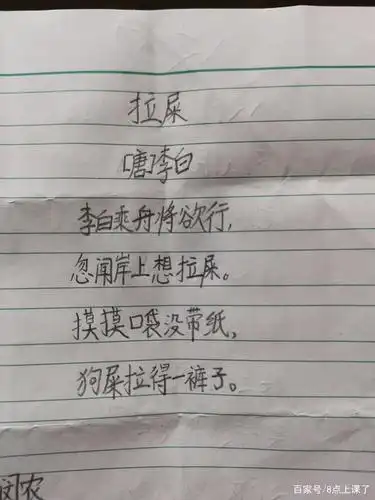 拉屎
[唐]李白
李白乘舟将欲行,
忽闻岸上想拉屎。
摸摸口袋没带纸,
狗屎拉得一裤子。
悯农
百家号/8点上课了